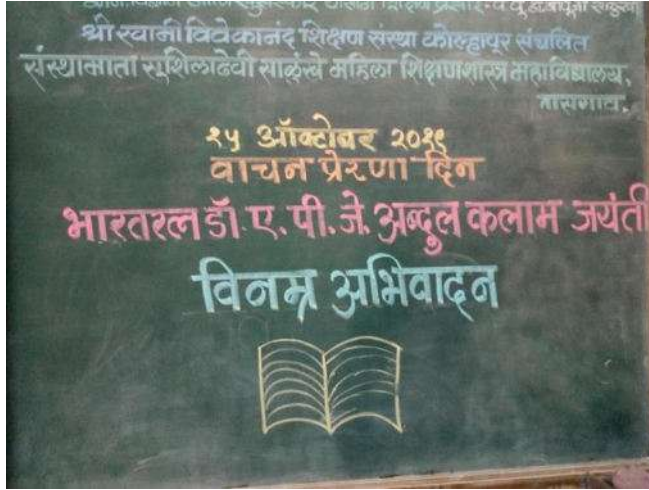 ज्ञान, विज्ञान आणि सुसंस्कार यासाठी शिक्षण प्रसार -
श्री स्वामी विवेकानंद शिक्षण संस्था कोल्हापूर संचलित
संस्थामाता सुशिलादेवी साळुंखे महिला शिक्षणशास्त्र महाविद्यालय,
तासगाव.
१५ ऑक्टोबर २०१९
वाचन प्रेरणा दिन
भारतरत्न डॉ. ए. पी. जे. अब्दुल कलाम जयंती
विनम्र अभिवादन